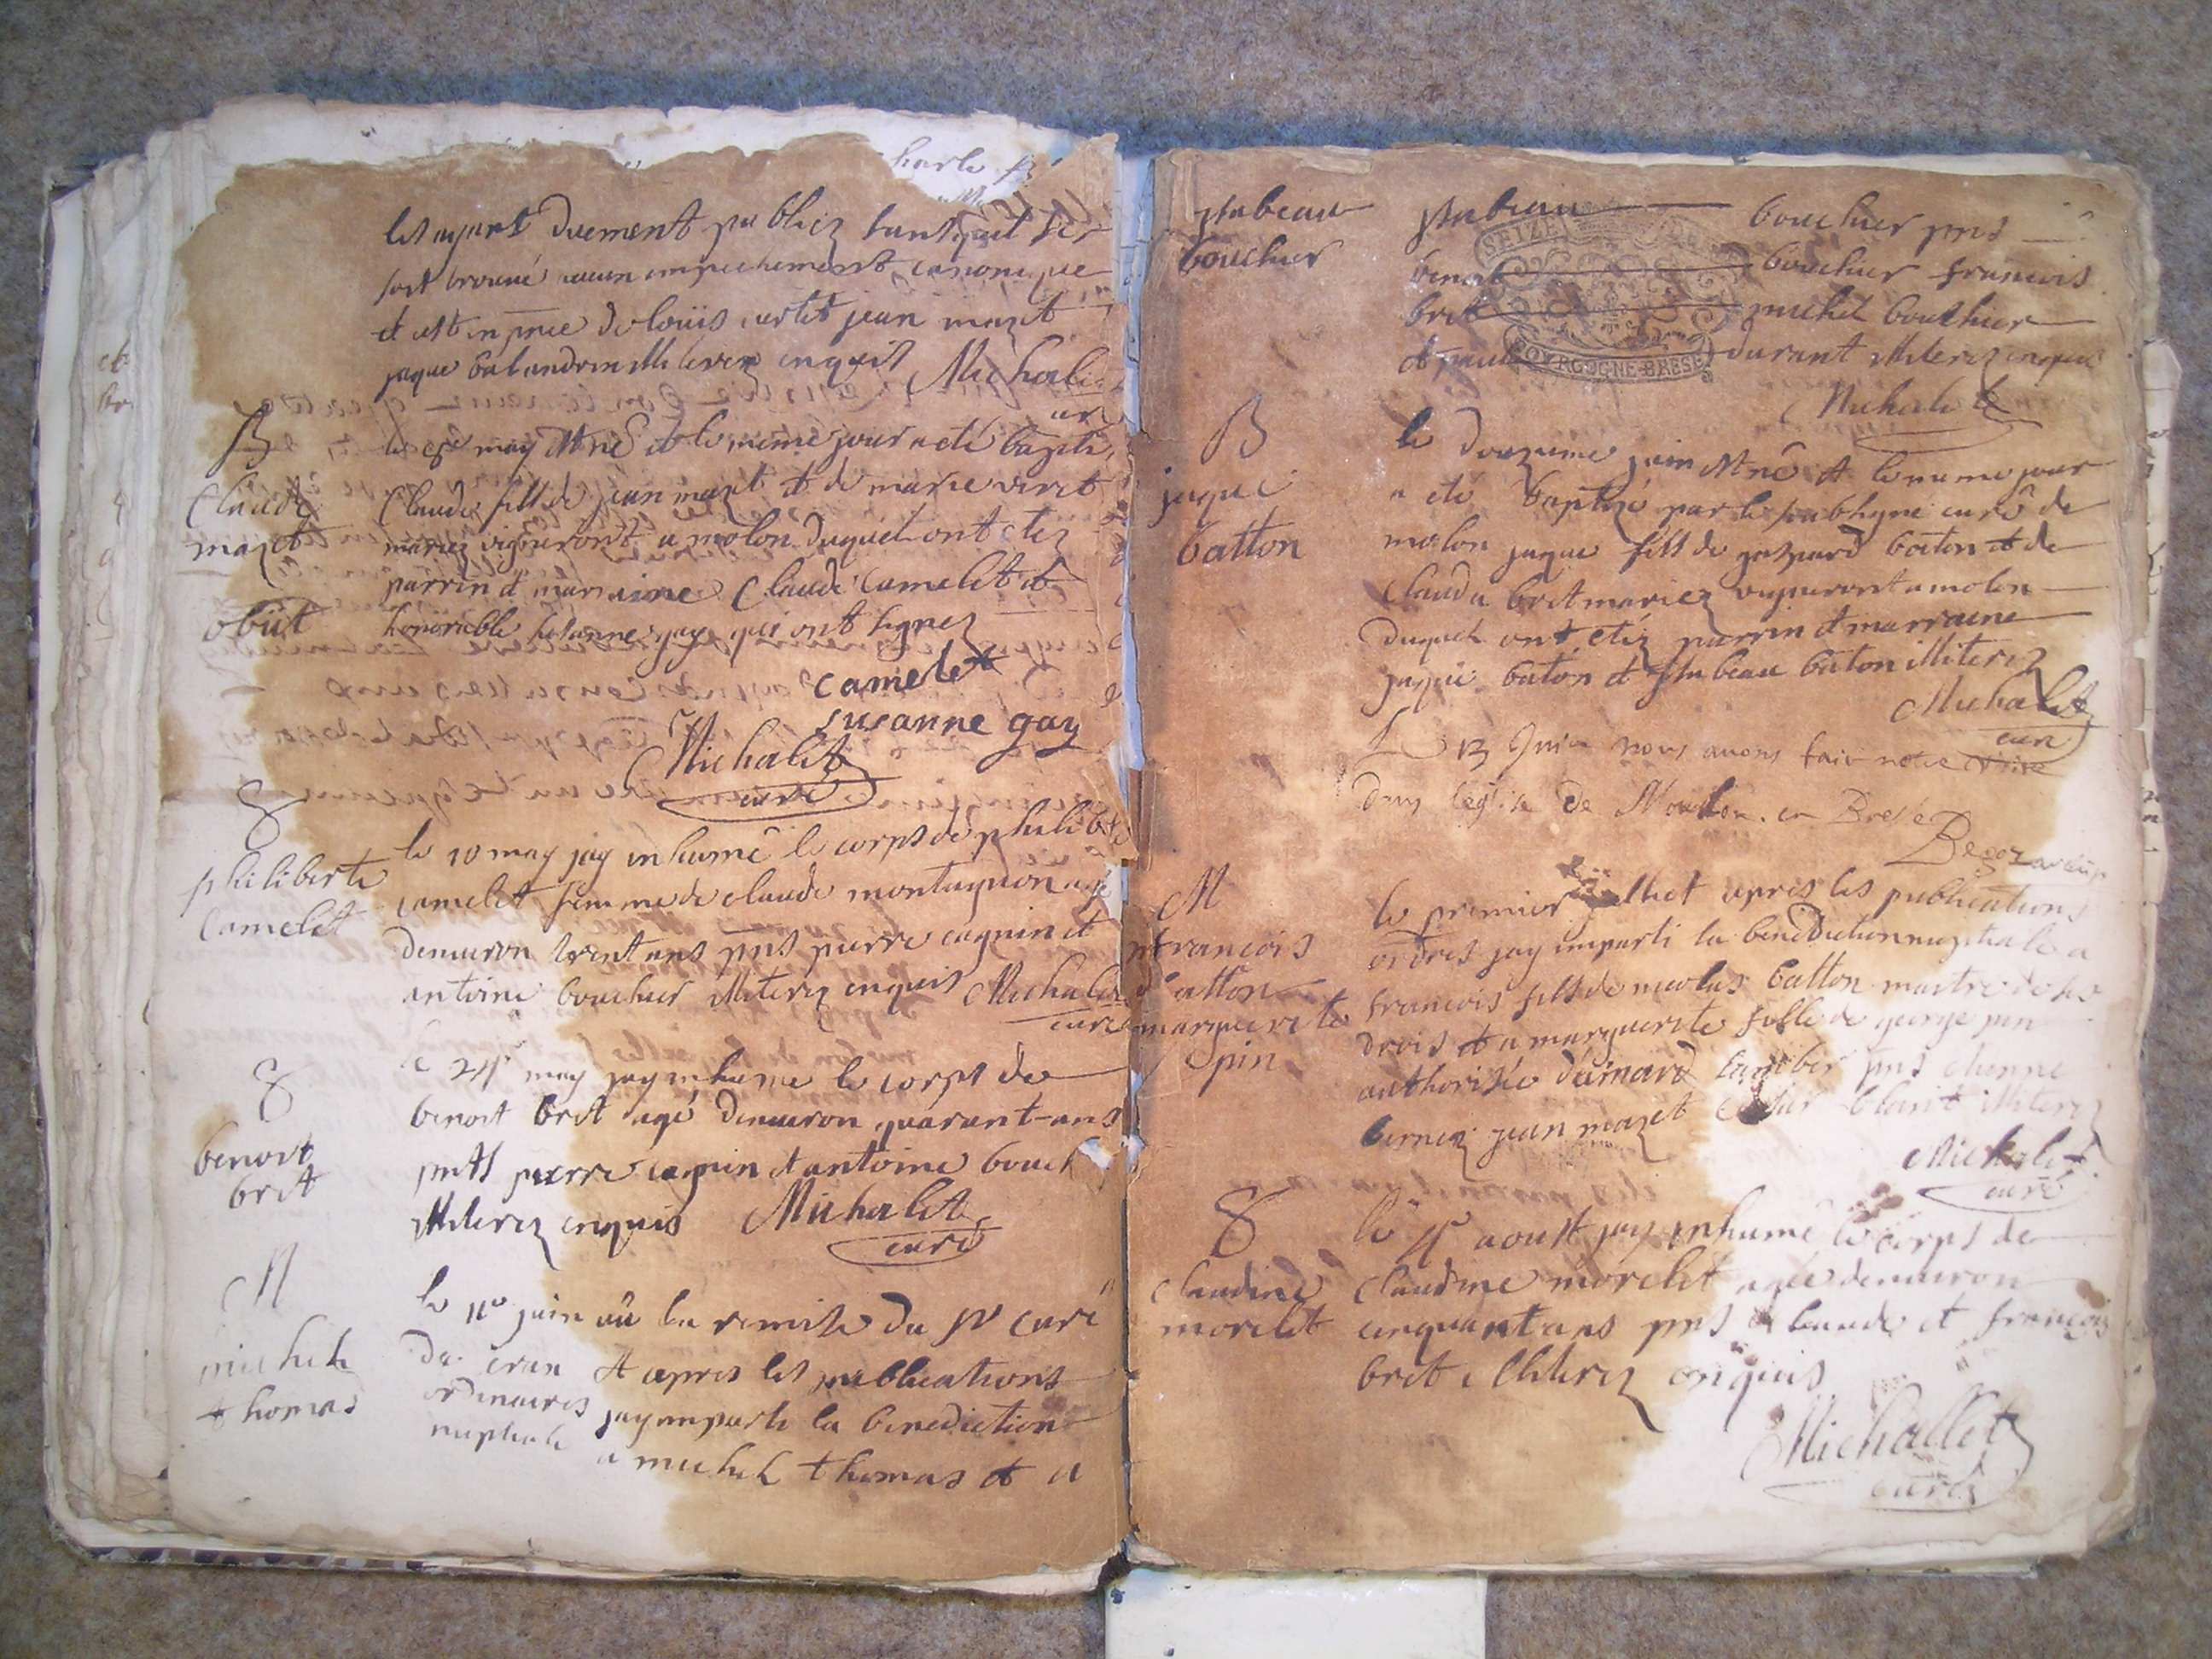 harle
les ayant duement publiez sans quil se
soit trouué aucun empechement canonique
et est en pnce de loüis curtet jean mazet
jaque balandrin illiterez enquis Michalet
curé
B
Claude
mazet
obiit
le may est né et le meme jour a eté baptisé
Claude fils de jean mazet et de marie veret
mariez vigneront a molon duquel ont etez
parrin et marraine Claude Camelet et
honorable susanne gay qui ont signez
camelet
susanne gay
Michalet
curé
S
philiberte
Camelet
le 10 may jay inhumé le corps de philiberte
camelet femme de claude montagnon agé
denuiron trent ans pns pierre cagnin et
antoine bouchier illiterez enquis Michalet
curé
S
benoit
bret
le 24e may jay inhumé le corps de
benoit bret agé denuiron quarant-ans
pnts pierre cagnin et antoine bouch
illiterez enquis Michalet
curé
M
michel
thomas
le 11e juin aü la remise du sr curé
de cran et apres les publications
ordinaires jay imparti la benediction
nuptiale a michel thomas et a
ysabeau
bouchier
ysabeau bouchier pns
benoit bouchier francois
bret michel bouchier
et paul durant illiterez enquis
SEIZE
BOURGOGNE-BRESSE
Michalet
B
jaque
batton
le douzieme juin est né et le meme jour
a eté baptizé par le soubsigné curé de
molon jaque fils de gaspard baton et de
claudu bret mariez vigneront a molon
duquel ont etéz parrin et marraine
jaque baton et ysabeau baton illiterez
Michalet
curé
Le 13 Juin nous auons fait notre visite
dans léglise de Moulon en Bresse
M
francois
batton
marguerite
pin
le premier juilliet apres les publications
ordres jay imparti la benediction nuptiale a
francois fils de nicolas batton maitre de ses
drois et a marguerite fille de george pin
authorisée pns etienne
bernez jean mazet illiterez
Michalet
curé
S
claudine
morelet
le 4e aoust jay inhumé le corps de
claudine morelet agée denuiron
cinquant ans pns claude et francois
bret illiterez enquis
Michallet
curé